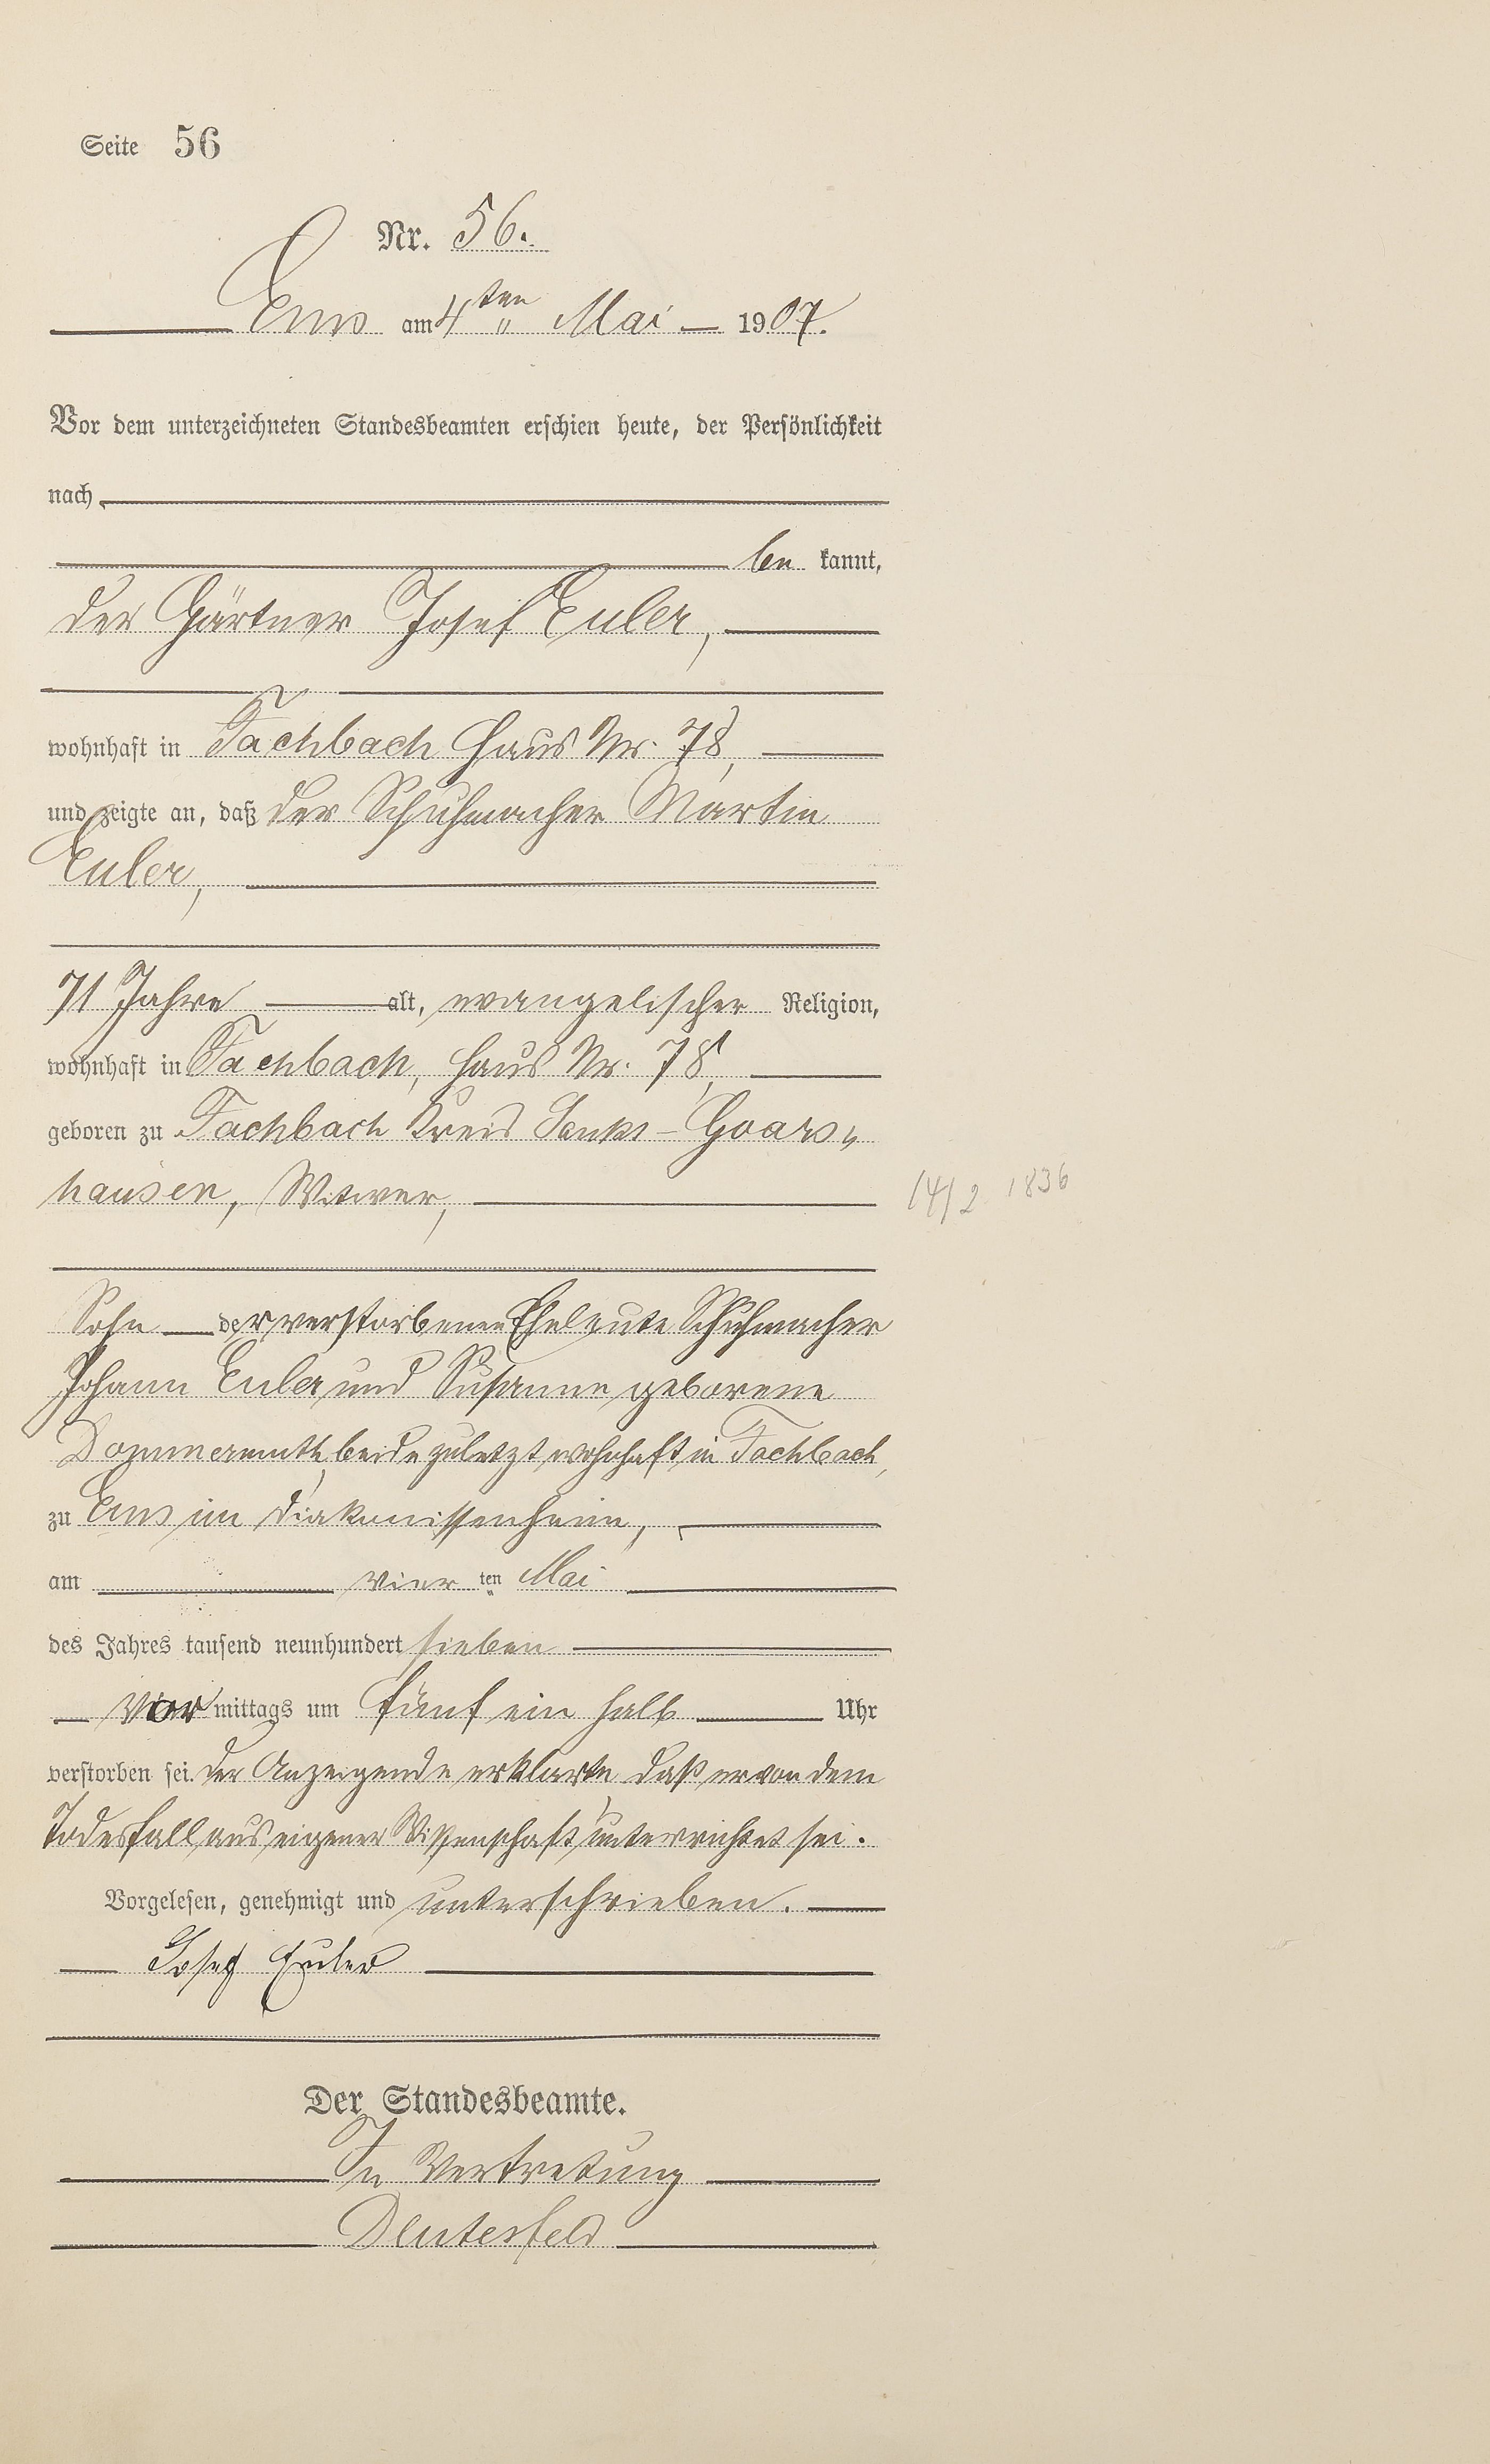 Seite 56
Nr. 56.
Ems am 4ten Mai 1907.
Vor dem unterzeichneten Standesbeamten erschien heute, der Persönlichkeit
nach
be kannt,
der Gärtner Josef Euler,
wohnhaft in Fachbach Haus Nr. 78,
und zeigte an, daß der Schuhmacher Martin
Euler,
71 Jahre alt, evangelischer Religion,
wohnhaft in Fachbach, Haus Nr. 78,
geboren zu Fachbach Kreis Sankt-Goars-
hausen, Witwer,
14/2 1836
Sohn der verstorbenen Eheleute Schuhmacher
Johann Euler und Susanne geborene
Dommermuth, beide zuletzt wohnhaft in Fachbach,
zu Ems im Diakonissenheim,
am vier ten Mai
des Jahres tausend neunhundert sieben
Vor mittags um fünf ein halb Uhr
verstorben sei. Der Anzeigende erklärte, daß er von dem
Todesfall aus eigener Wissenschaft unterrichtet sei.
Vorgelesen, genehmigt und unterschrieben.
Josef Euler
Der Standesbeamte.
In Vertretung